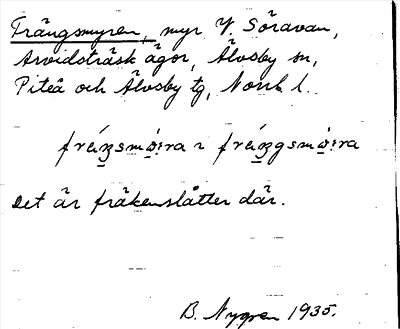 Frängsmyren, myr V. Söravan,
Arvidsträsk ägor, Älvsby sn,
Piteå och Älvsby tg, Norrb l.
Det är fräkenslåtter där.
B. Nygren 1935.